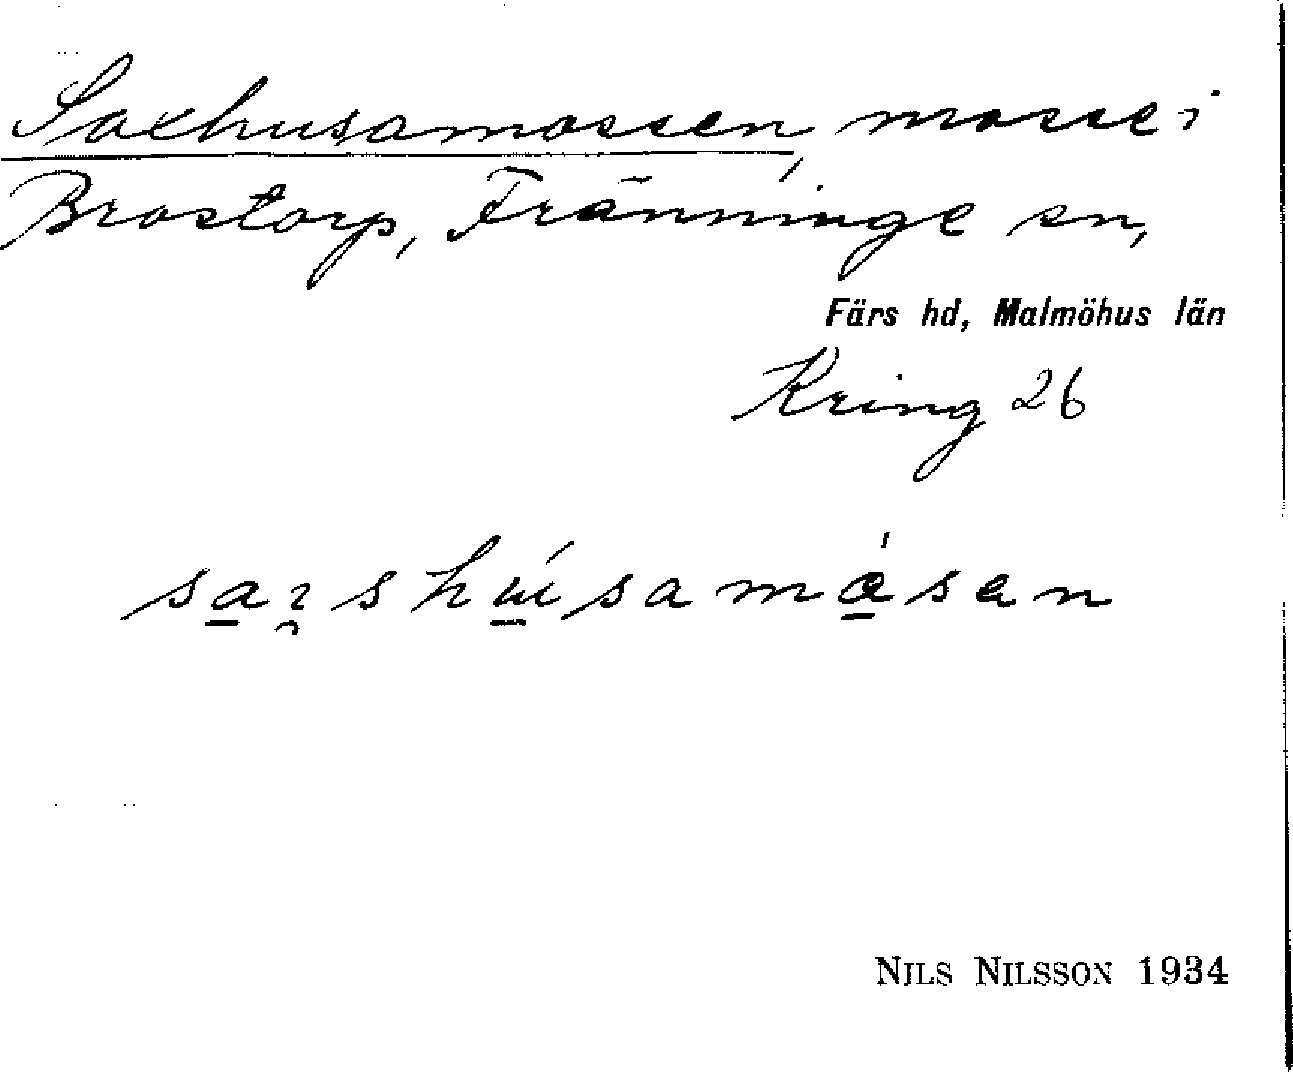 Saxhusamossen, mosse i
Brostorp, Fränninge sn,
Färs hd, Malmöhus län
Kring 26
NILS NILSSON 1934